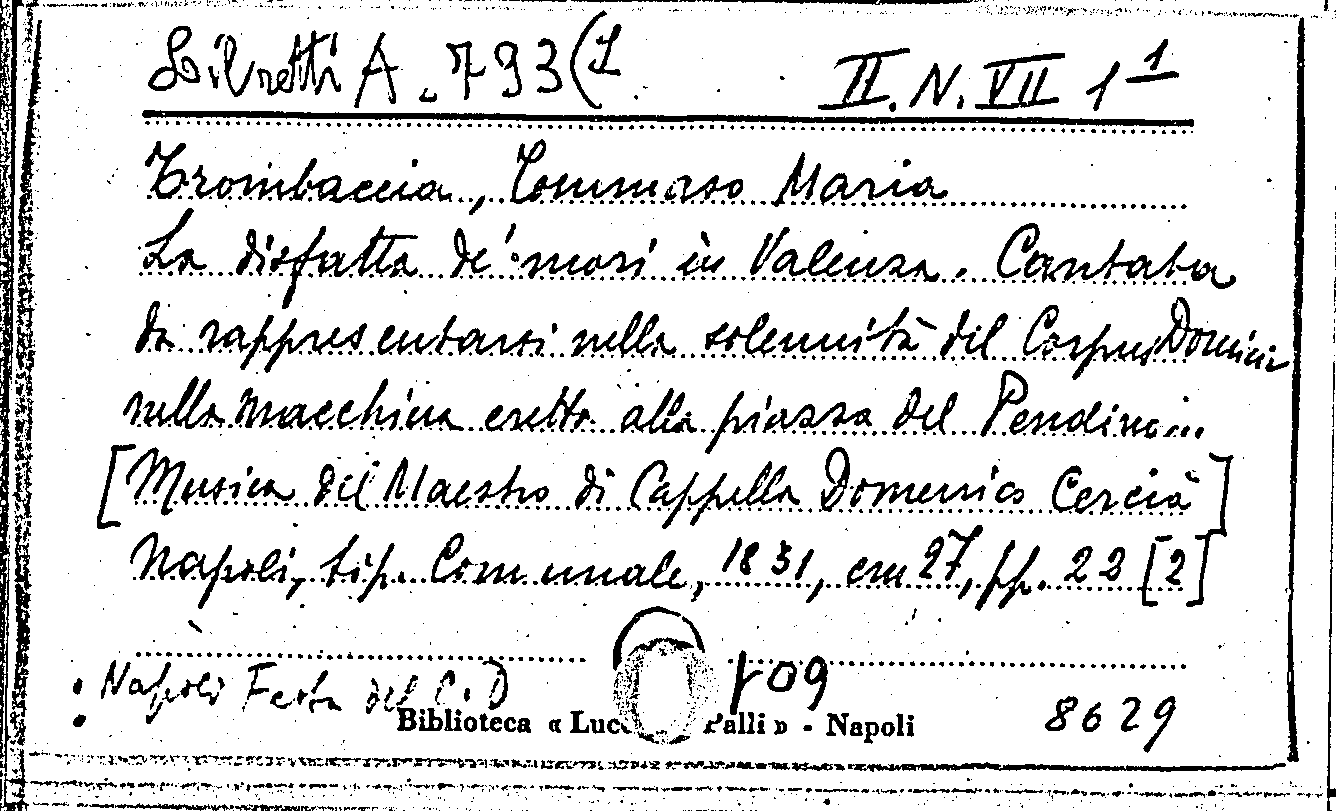 Libretti A. 793(1 II. N. VII 1 1
Trombaccia, Tommaso Maria
La disfatta de' mori in Valenza. Cantata
da rappresentarsi nella solennità del Corpus Domini
nella macchina eretta alla piazza del Pendino...
[Musica del Maestro di Cappella Domenico Cercià]
Napoli, tip. Comunale, 1831, cm 27, pp. 22 [2]
Napoli Festa del C. D 109
Biblioteca « Luc Palli » - Napoli 8629